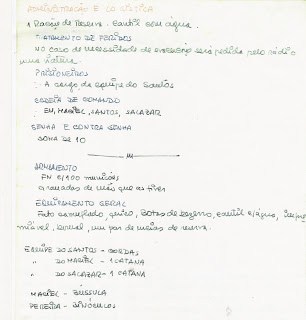 ADMINISTRAÇÃO E LOGÍSTICA
1 Ração de Reserva. Cantil sem água.
TRATAMENTO DE FERIDOS
No caso de necessidade de evacuação será pedida pelo rádio
uma viatura.
PRISIONEIROS
: A cargo da equipe do Santos
CADEIA DE COMANDO
: EU, MACIEL, SANTOS, SALAZAR
SENHA E CONTRA SENHA
SOMA DE 10
ARMAMENTO
FN C/100 munições
Granadas de mão que as tiver
EQUIPAMENTO GERAL
Fato camuflado, quico, Botas de
cantil c/água,
bornal, um par de meias de reserva.
EQUIPE DO SANTOS - CORDAS
" DO MACIEL - 1 CATANA
" DO SALAZAR - 1 CATANA
MACIEL - BÚSSULA
PEREIRA - BINÓCULOS